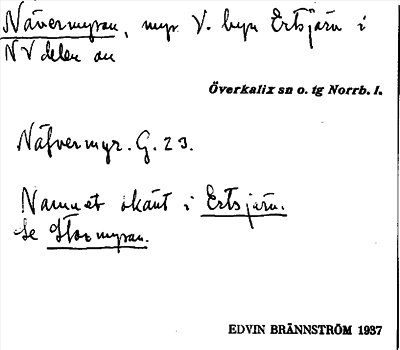 Nävermyran, myr V. byn Ertsjärv i
NV delen av
Överkalix sn o. tg Norrb. l.
Näfvermyr. G. 23.
Namnet okänt i Ertsjärv.
Se Stormyran.
EDVIN BRÄNNSTRÖM 1937